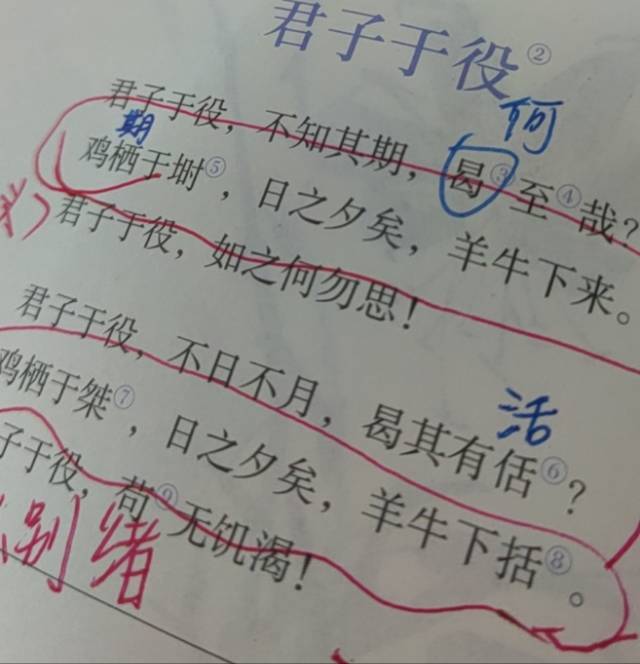 君子于役②
何
君子于役，不知其期，曷③至④哉？
期
鸡栖于埘⑤，日之夕矣，羊牛下来。
君子于役，如之何勿思！
君子于役，不日不月，曷其有佸⑥？
活
鸡栖于桀⑦，日之夕矣，羊牛下括⑧。
子于役，苟⑨无饥渴！
别绪